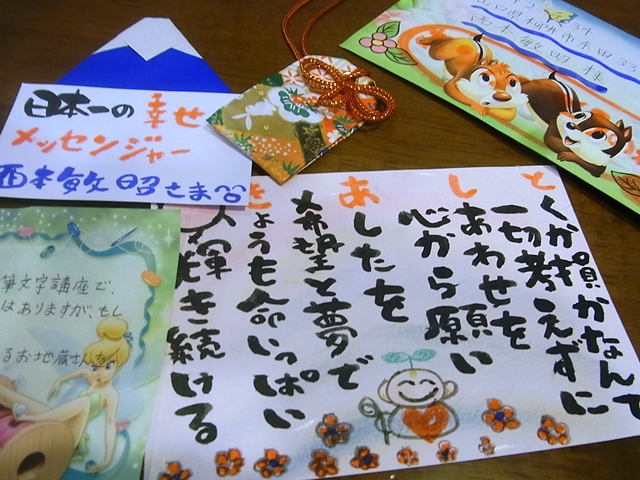 日本一の幸せ
メッセンジャー
西本敏昭さま
34
33
西本敏昭様
とくか損かなんて
一切考えずに
しあわせを
心から願い
あしたを
希望と夢で
きょうも命いっぱい
輝き続ける
筆文字講座で、
はありますが、もし
るお地蔵さんを